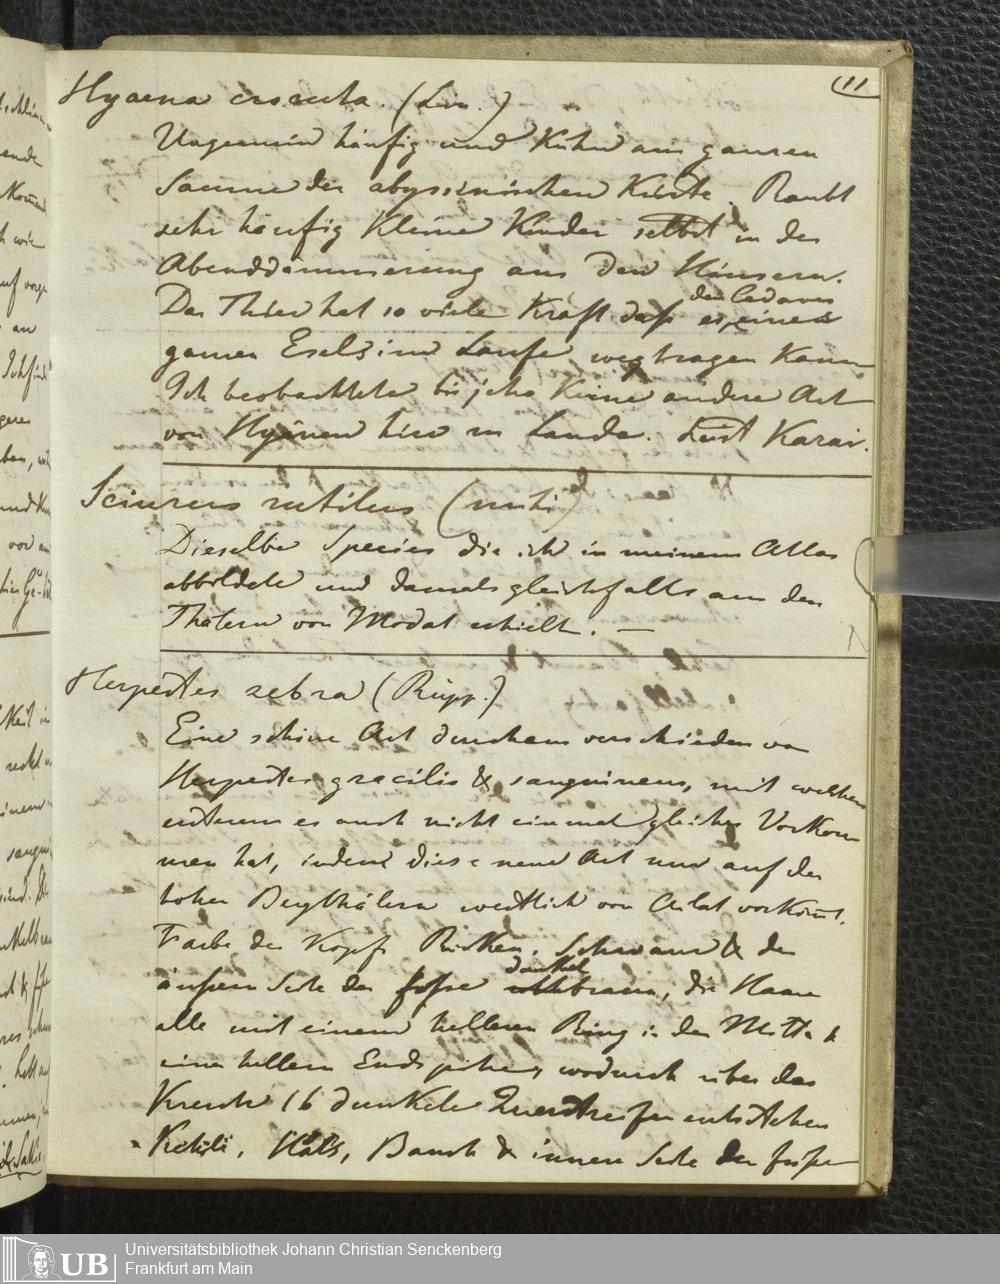 11
Hyaena crocuta. (Lin.)
Ungemein häufig und Kühn am ganzen
Saume der abyssinischen Küste. Raubt
sehr häufig Kleine Kinder selbst in der
Abenddämmerung aus den Häusern.
Das Thier hat so viele Kraft daß es den Cadaver eines
ganzen Esels im Laufe wegtragen Kann
Ich beobachtete bis jetzo Keine andere Art
von Hyänen hier im Lande. Karai.
Sciurus rutilus (mihi)
Dieselbe Species die ich in meinem Atlas
abbildete und damals gleichfalls aus den
Thälern von Modat erhielt. —
Herpestes zebra (Rüpp.)
Eine schöne Art durchaus verschieden von
Herpestes gracilis & sanguineus, mit welchen
ersterem es auch nicht einmal gleiches Vorkom
men hat, indem diese neue Art nur auf den
hohen Bergthälern westlich von Ailat vorkömt.
Farbe des Kopfs Rücken, Schwanz & der
äußern Seite der füße dunkelbraun, die Haare
alle mit einem hellern Ring in der Mitte &
einer hellern Endspitze, wodurch über das
Kreutz 16 dunkele Querstreifen entstehen
Kehle, Hals, Bauch & innere Seite der füße
UB
Universitätsbibliothek Johann Christian Senckenberg
Frankfurt am Main